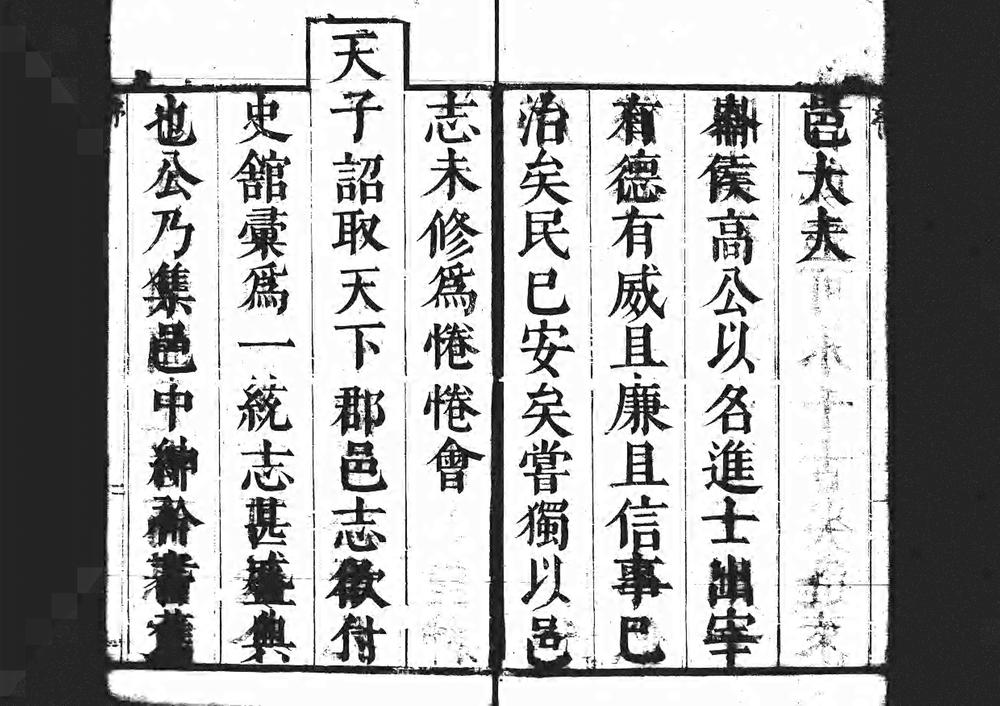 邑大夫
侯高公以名進士出宰
有德有威且廉且信事巳
治矣民巳安矣嘗獨以邑
志未修爲惓惓會
天子詔取天下郡邑志欲付
史館彙爲一統志甚盛典
也公乃集邑中紳衿耆舊